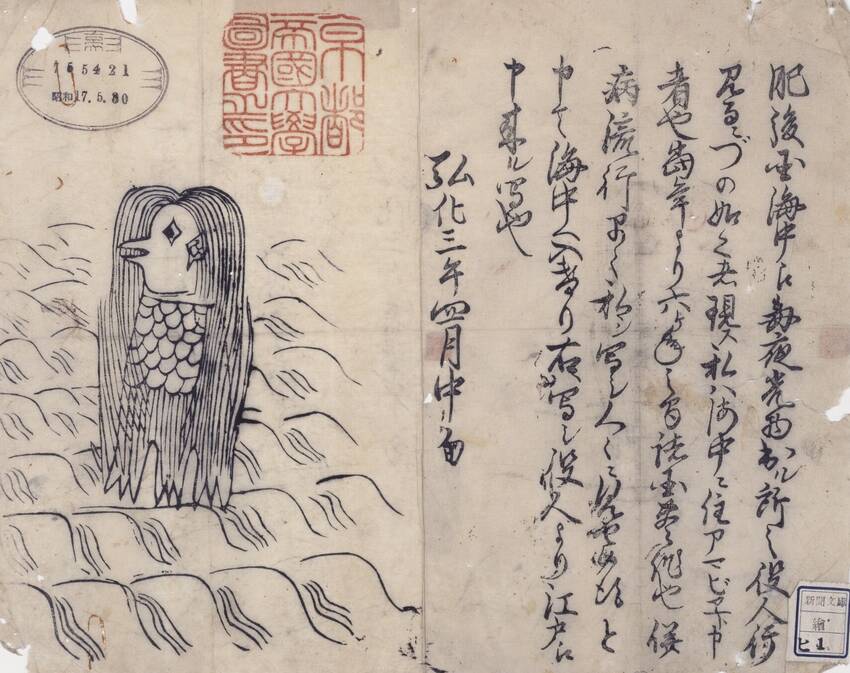 肥後国海中え毎夜光物出ル所之役人行
見るニづの如之者現ス私ハ海中ニ住アマビヱト申
者也當年より六ヶ年之間諸国豊作也併
病流行早々私シ写シ人々ニ見セ候得と
申て海中へ入けり右写シ役人より江戸え
申来ル写也
弘化三年四月中旬
京都
帝國大學
圖書之印
昭和17.5.30
新聞文庫
繪
ヒ 1